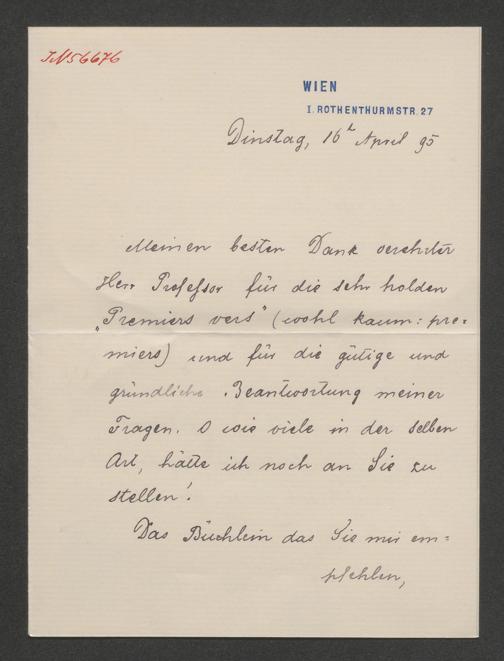 IN 56676
WIEN
I. ROTHENTHURMSTR. 27
Dinstag, 16t April 95
Meinen besten Dank verehrter
Herr Professor für die sehr holden
„Premiers vers" (wohl kaum: pre=
miers) und für die gütige und
gründliche Beantwortung meiner
Fragen. O wie viele in der selben
Art, hätte ich noch an Sie zu
stellen!
Das Büchlein das Sie mir em=
pfehlen,